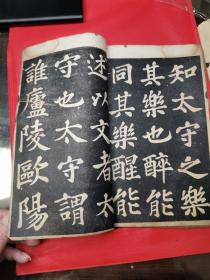 知太守之樂
其樂也醉能
同其樂醒能
述以文者太
守也太守謂
誰廬陵歐陽